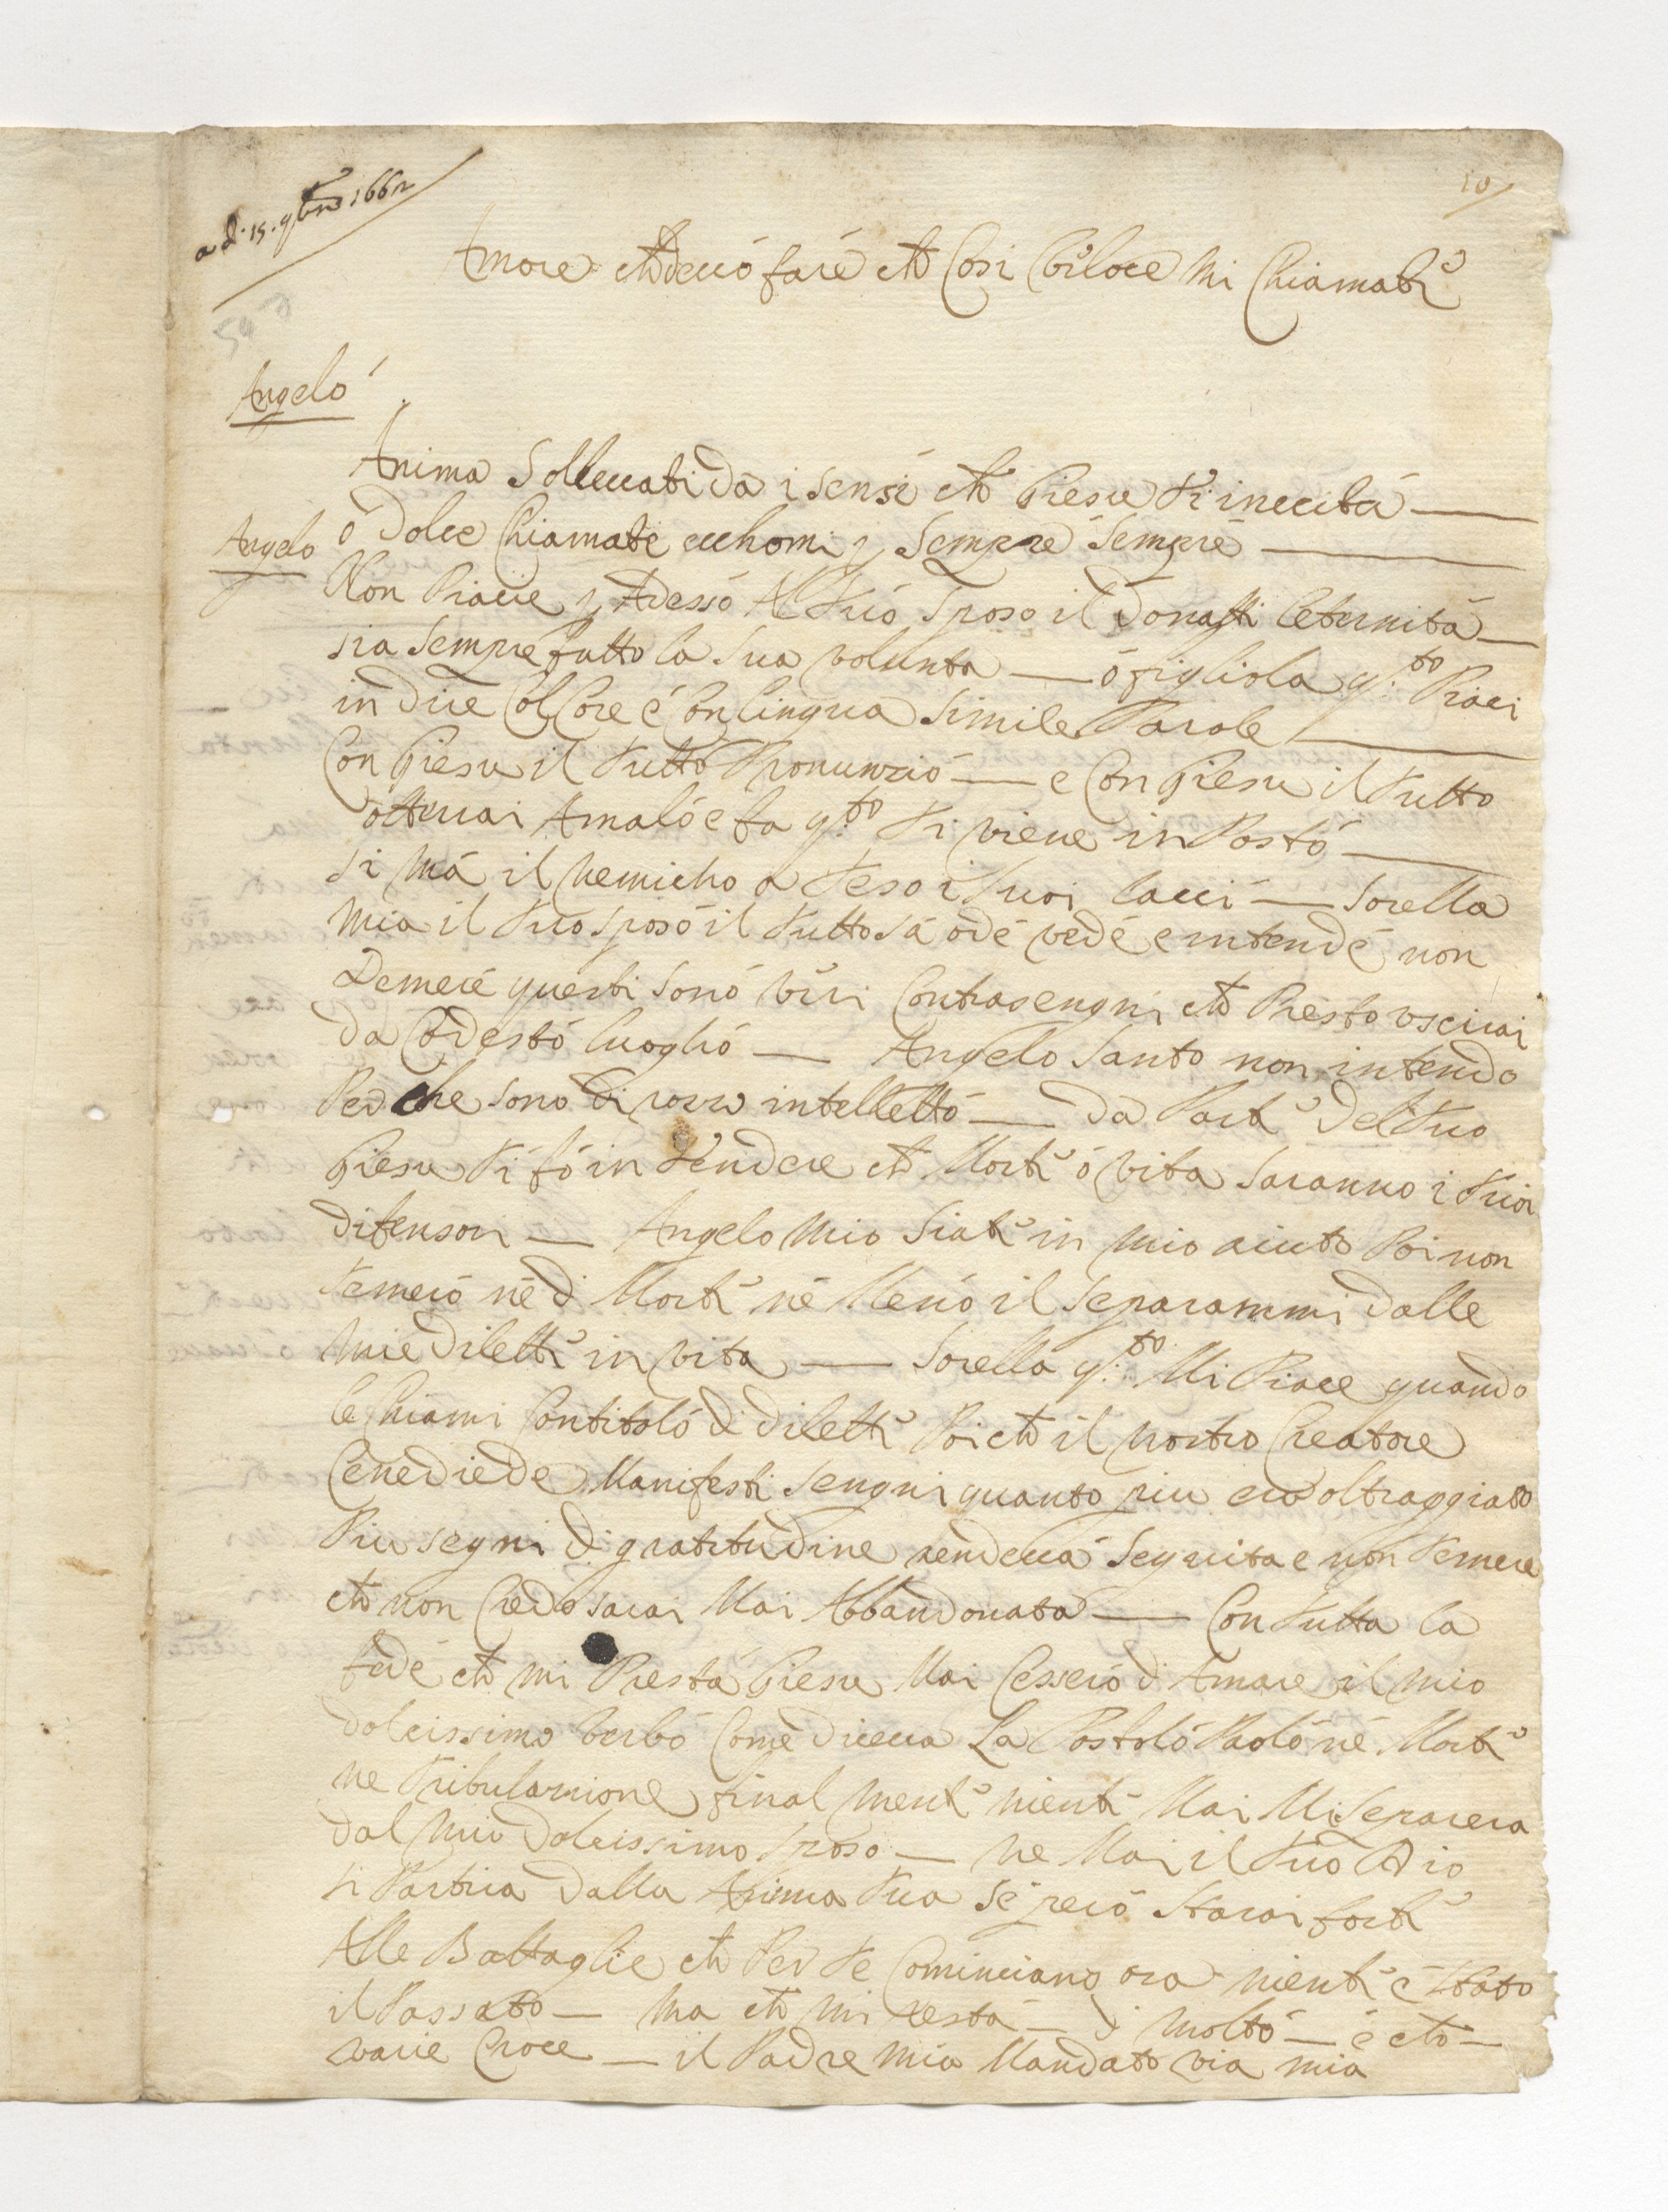 10
a d. 15. 9bre 1662
Amore che deuo fare che Cosi Veloce mi Chiamate
Angelo
Anima Solleuati da i sensi che Giesu ti inuita —
Angelo
o dolce Chiamate ecchomi p Sempre Sempre —
Non Piacie p Adesso Al tuo Sposo il donatti leternita —
sia Sempre fatto la Sua volunta — o figliola q.to Piaci
in dire Col Core e Con lingua Simile Parole —
Con Giesu il tutto Pronunzio — e Con Giesu il tutto
otterrai Amalo e fa q.to ti viene in Posto —
si ma il nemicho a teso i suoi lacci — Sorella
mia il tuo sposo il tutto sa ode vede e intende non
Temere questi sono veri Contrasengni che Presto uscirai
da Codesto luogho — Angelo Santo non intendo
Per che sono di rozzo intelletto — da Parte del tuo
Giesu ti fo in tendere che Morte o vita Saranno i tuoi
difensori — Angelo mio Siate in mio aiuto Poi non
temero ne di Morte ne Meno il Separarmmi dalle
mie dilette in vita — Sorella q.to Mi Piace quando
le Chiami Contitolo di dilette Poi che il nostro Creatore
Cenediede Manifesti Sengni quanto piu era oltraggiato
Piu segni di gratitudine rendeua Seguita e non temere
che non Credo sarai Mai Abbandonata — Con tutta la
fede che mi Presta Giesu Mai Cessero di Amare il mio
dolcissimo verbo Come diceua La Postolo Paolo ne Morte
ne tribulazione final mente niente Mai Mi Separera
dal mio dolcissimo Sposo — ne Mai il tuo Dio
ti Partira dalla Anima tua se pero Starai forte
Alle Battaglie che Per te Cominciano ora niente e Stato
il Passato — Ma che mi resta — di molto — e che —
varie Croce — il Padre mio Mandato via mia